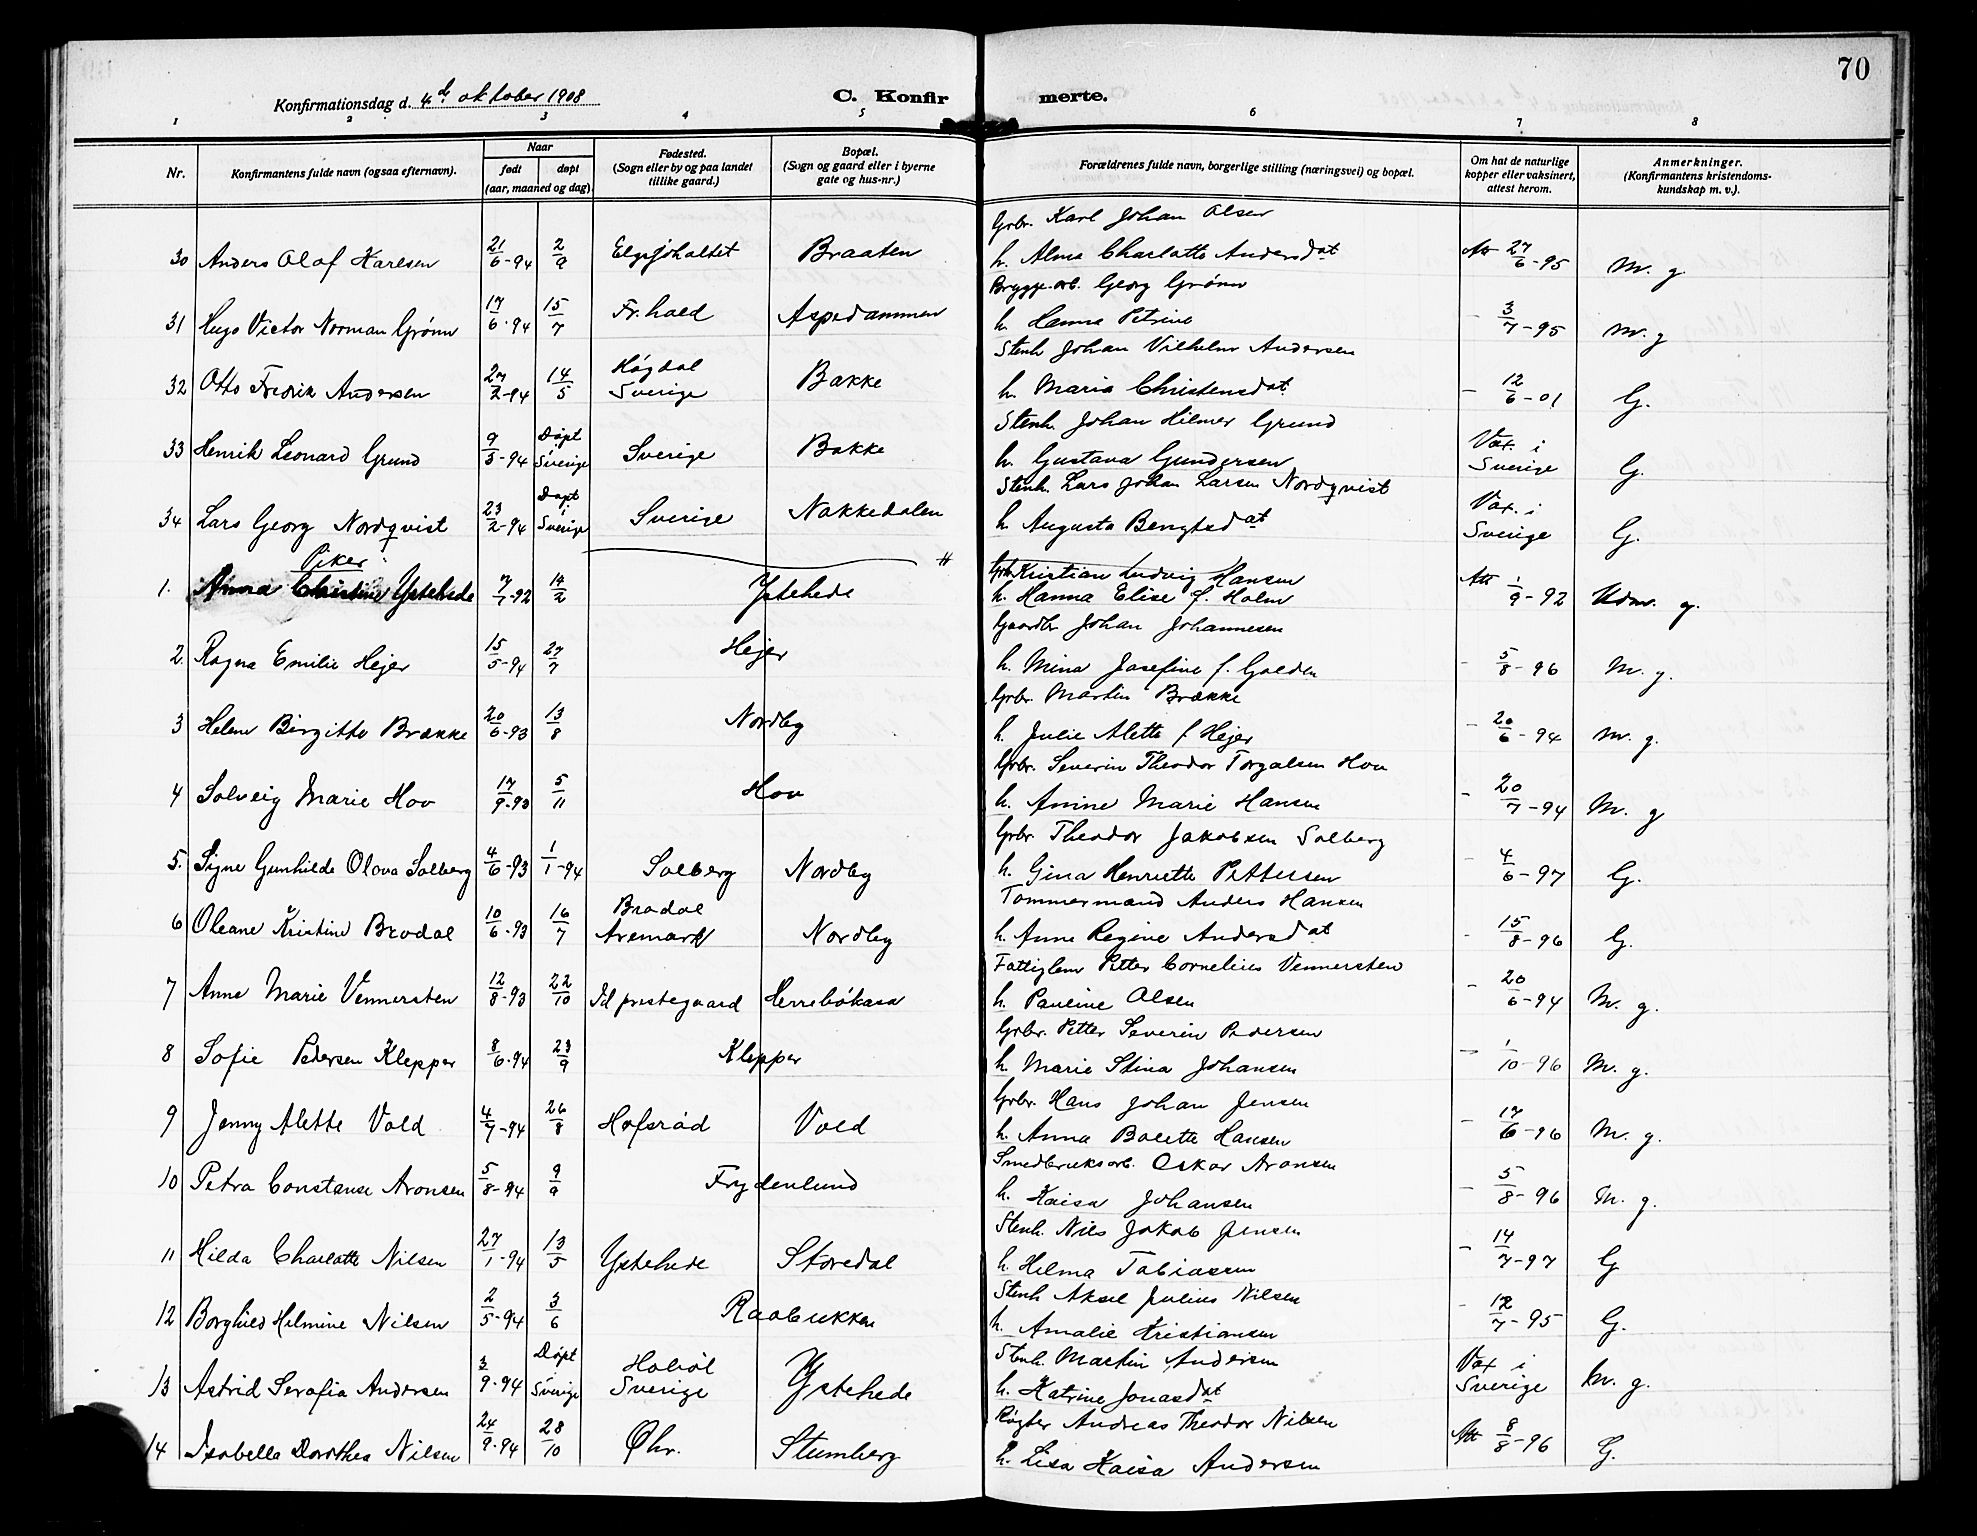 70
Konfirmationsdag d. 4de oktober 1908
C. Konfirmerte.
1 2 3 4 5 6 7 8
Nr. | Konfirmantens fulde navn (ogsaa efternavn). | Naar født døpt (aar, maaned og dag) | Fødested. (Sogn eller by og paa landet tillike gaard.) | Bopæl. (Sogn og gaard eller i byerne gate og hus-nr.) | Forældrenes fulde navn, borgerlige stilling (næringsvei) og bopæl. | Om hat de naturlige kopper eller vaksinert, attest herom. | Anmerkninger. (Konfirmantens kristendomskundskap m. v.).
Grbr. Karl Johan Olsen
30 Anders Olaf Karlsen 21/6-94 2/9 Braaten h. Alma Charlotte Andersdat Att 27/6-95 M. g.
Brygge-arb. Georg Grönn
31 Hugo Victor Norman Grönn 17/6-94 15/7 Fr.hald Aspedammen h. Hanna Petrine - 3/7-95 M. g
Stenh. Johan Vilhelm Andersen
32 Otto Fredrik Andersen 27/2-94 14/5 Høgdal Sverige Bakke h. Maria Christensdat - 12/6-01 G.
Stenh. Johan Hilmer Grund
33 Henrik Leonard Grund 9/3-94 Døpt i Sverige Sverige Bakke h. Gustava Gundersen Vax. i Sverige G.
Stenh. Lars Johan Larsen Nordqvist
34 Lars Georg Nordqvist 23/2-94 Døpt i Sverige Sverige Nakkedalen h. Augusta Bengtsdat Vax. i Sverige G.
Piker
Grbr. Kristian Ludvig Hansen
1. Anna Christine Ystehede 7/7-92 14/2 Ystehede h. Hanna Elise f. Holm Att 1/9-92 Udm. g.
Gaardbr. Johan Johannesen
2. Ragna Emilie Hejer 15/5-94 27/7 Hejer h. Mina Josefine f. Gulden - 5/8-96 M. g.
Grbr. Martin Brække
3 Helene Birgitte Brække 20/6-93 13/8 Nordby h. Julie Alette f Hejer - 20/6-94 M. g.
Grbr. Severin Theodor Torgalsen Hov
4 Solveig Marie Hov 17/9-93 5/11 Hov h. Amine Marie Hansen - 20/7-94 M. g
Grbr. Theodor Jakobsen Solberg
5. Signe Gunhilde Olova Solberg 4/6-93 1/1-94 Solberg Nordby h. Gina Henriette Pettersen - 4/6-97 G.
Tømmermand Anders Hansen
6 Oleane Kristine Brodal 10/6-93 16/7 Brodal Aremark Nordby h. Anne Regine Andersdat - 15/8-96 G.
Fattiglem Petter Cornelius Vennersten
7 Anna Marie Vennersten 12/8-93 22/10 Id prestegaard Herrebökasa h. Pauline Olsen - 20/6-94 M. g.
Grbr. Petter Severin Pedersen
8 Sofie Pedersen Klepper 8/6-94 23/9 Klepper h. Marie Stina Johansen - 1/10-96 M. g.
Grbr. Hans Johan Jensen
9 Jenny Alette Vold 4/7-94 26/8 Hofsröd Vold h. Anna Bolette Hansen - 17/6-96 M. g.
Smedbruksarb. Oskar Aronsen
10 Petra Constanse Aronsen 5/8-94 9/9 Frydenlund h. Kaisa Johansen - 5/8-96 M. g.
Stenh. Nils Jakob Jensen
11 Hilda Charlotte Nilsen 27/1-94 13/5 Ystehede Storedal h. Hilma Tobiassen - 14/7-97 G
Stenh Aksel Julius Nilsen
12 Borghild Helmine Nilsen 2/5-94 3/6 Raabukken h. Amalie Kristiansen - 12/7-95 G.
Stenh. Martin Andersen
13 Astrid Serafia Andersen 3/9-94 Døpt i Sverige Holöl Sverige Ystehede h. Katrine Jonasdat Vax i Sverige M. g.
Røgter Andreas Theodor Nilsen
14 Isabella Dorothea Nilsen 24/9-94 28/10 Øhr. Stumberg h. Lisa Kaisa Andersen Att 8/8-96 G.